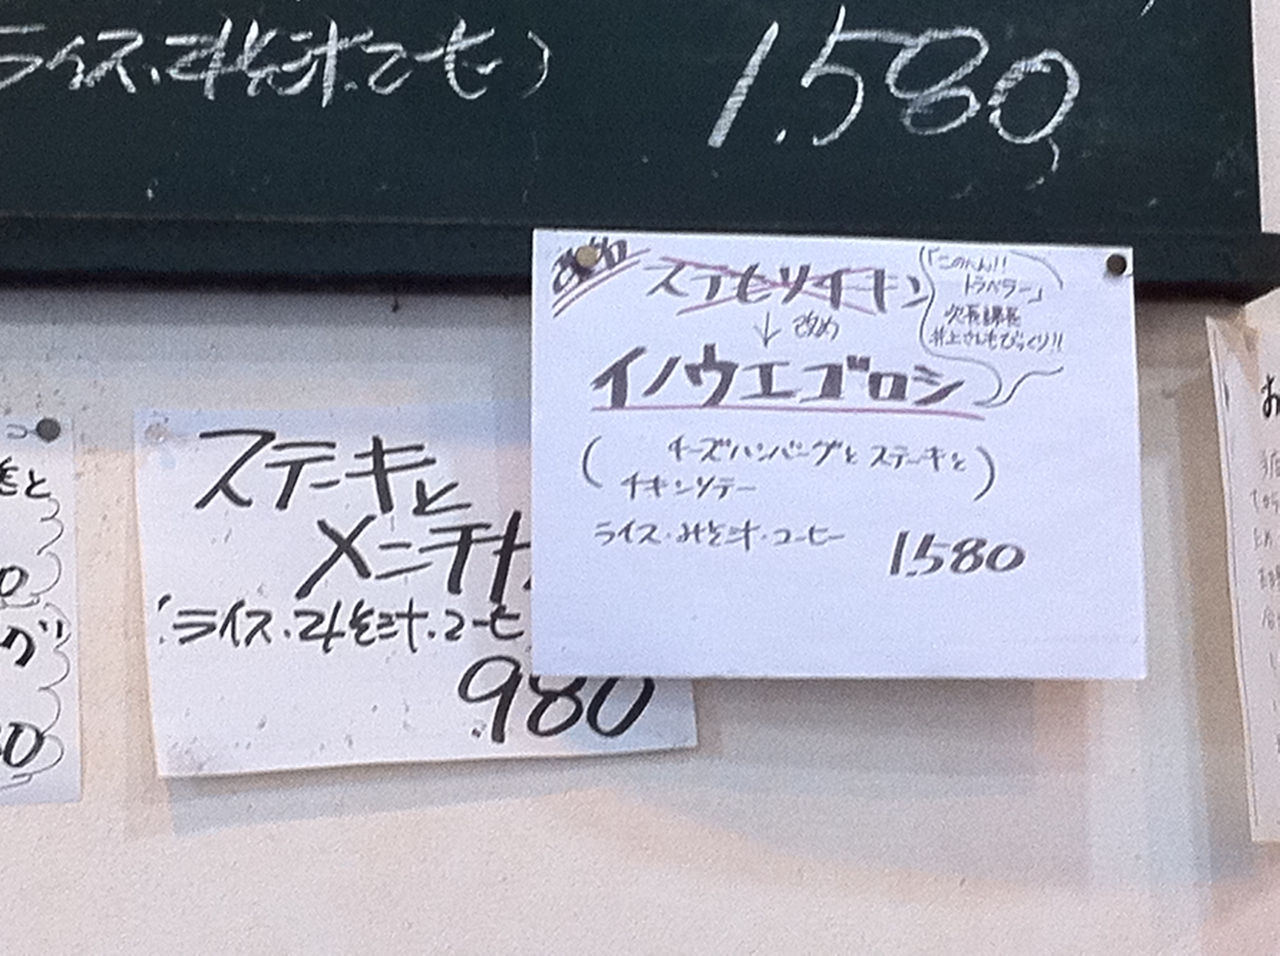 ライス・みそ汁・コーヒー)
1.580
改名
ステモソチキン
↓改め
イノウエゴロシ
「このへん!!
トラベラー」
次長課長
井上さんもびっくり!!
( チーズハンバーグと ステーキと
チキンソテー )
ライス・みそ汁・コーヒー
1.580
ステーキと
メニチ
ライス・みそ汁・コーヒ
.980